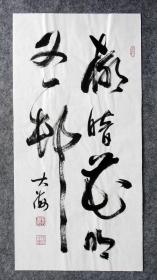 柳暗花明
又一村
大海